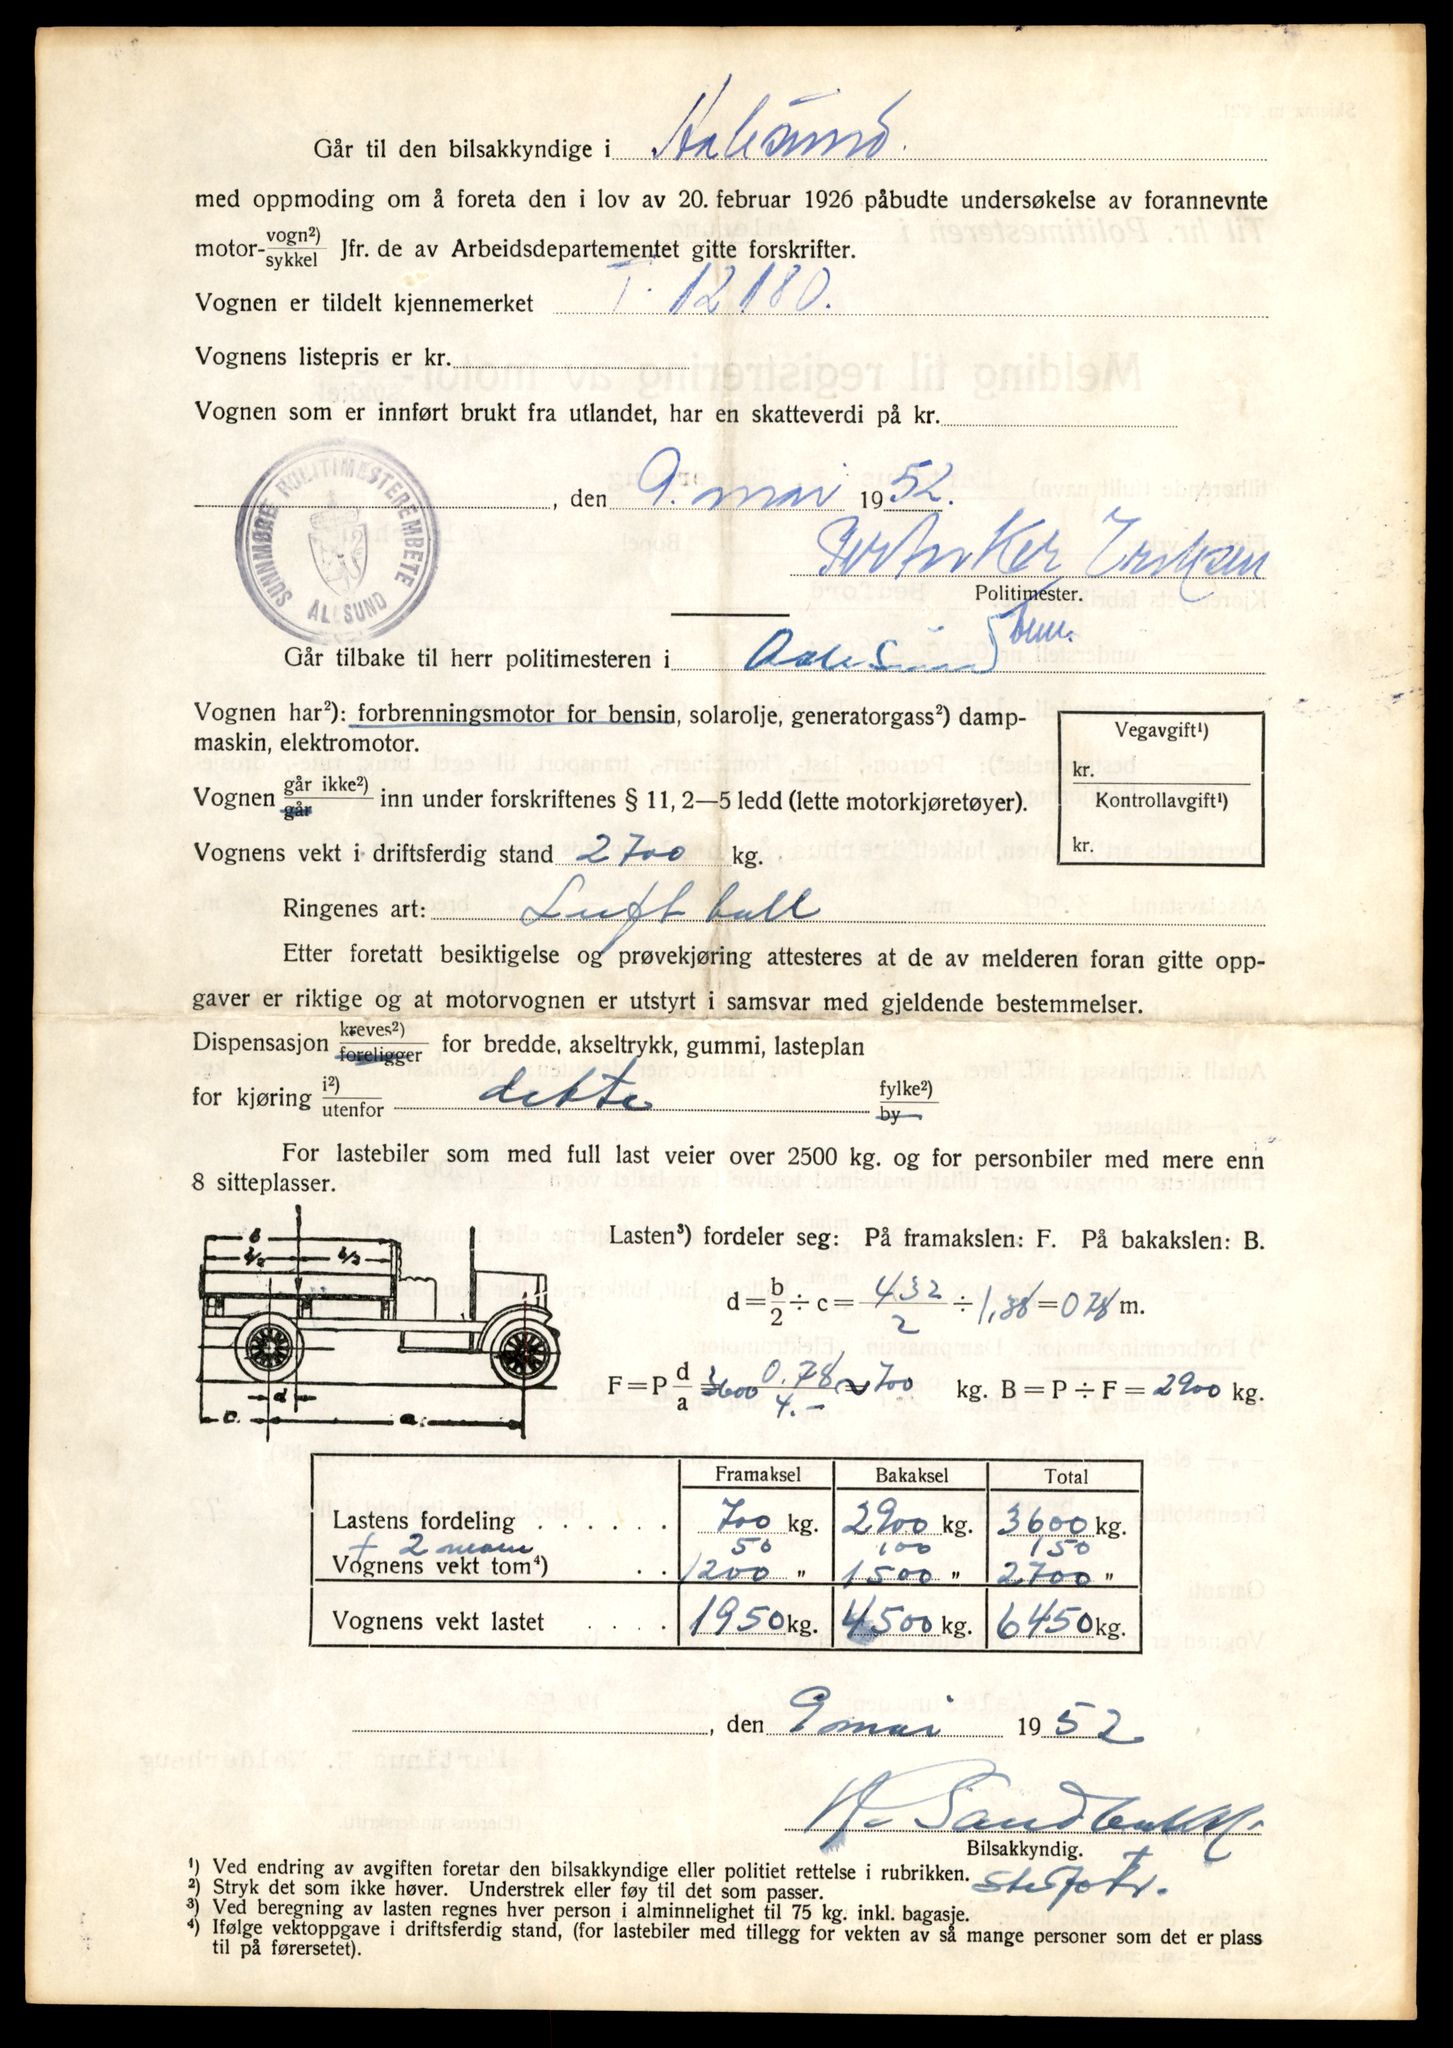 Går til den bilsakkyndige i Aalesund.
med oppmoding om å foreta den i lov av 20. februar 1926 påbudte undersøkelse av forannevnte
motor- vogn²) / sykkel Jfr. de av Arbeidsdepartementet gitte forskrifter.
Vognen er tildelt kjennemerket T. 12180.
Vognens listepris er kr.
Vognen som er innført brukt fra utlandet, har en skatteverdi på kr.
SUNNMØRE POLITIMESTEREMBETE
ÅLESUND
, den 9. mai 1952.
Politimester.
Går tilbake til herr politimesteren i Aalesund
Vognen har²): forbrenningsmotor for bensin, solarolje, generatorgass²) damp-
maskin, elektromotor.
Vegavgift¹)
kr.
Kontrollavgift¹)
kr.
Vognen går ikke²) / går inn under forskriftenes § 11, 2—5 ledd (lette motorkjøretøyer).
Vognens vekt i driftsferdig stand 2700 kg.
Ringenes art: Luft ball
Etter foretatt besiktigelse og prøvekjøring attesteres at de av melderen foran gitte opp-
gaver er riktige og at motorvognen er utstyrt i samsvar med gjeldende bestemmelser.
Dispensasjon kreves²) / foreligger for bredde, akseltrykk, gummi, lasteplan
for kjøring i²) / utenfor dette fylke²) / by
For lastebiler som med full last veier over 2500 kg. og for personbiler med mere enn
8 sitteplasser.
b
b/2 b/2
d
c. a.
Lasten³) fordeler seg: På framakslen: F. På bakakslen: B.
d = b/2 ÷ c = 432/2 ÷ 1,38 = 0 78 m.
F = P d/a = 3600 0.78/4.- ~ 700 kg. B = P ÷ F = 2900 kg.
Framaksel Bakaksel Total
Lastens fordeling . . . . . . 700 kg. 2900 kg. 3600 kg.
+ 2 mann 50 100 150
Vognens vekt tom⁴) . . 1200 „ 1500 „ 2700 „
Vognens vekt lastet . . . . 1950 kg. 4500 kg. 6450 kg.
, den 9 mai 1952
Bilsakkyndig.
¹) Ved endring av avgiften foretar den bilsakkyndige eller politiet rettelse i rubrikken.
²) Stryk det som ikke høver. Understrek eller føy til det som passer.
³) Ved beregning av lasten regnes hver person i alminnelighet til 75 kg. inkl. bagasje.
⁴) Ifølge vektoppgave i driftsferdig stand, (for lastebiler med tillegg for vekten av så mange personer som det er plass
til på førersetet).